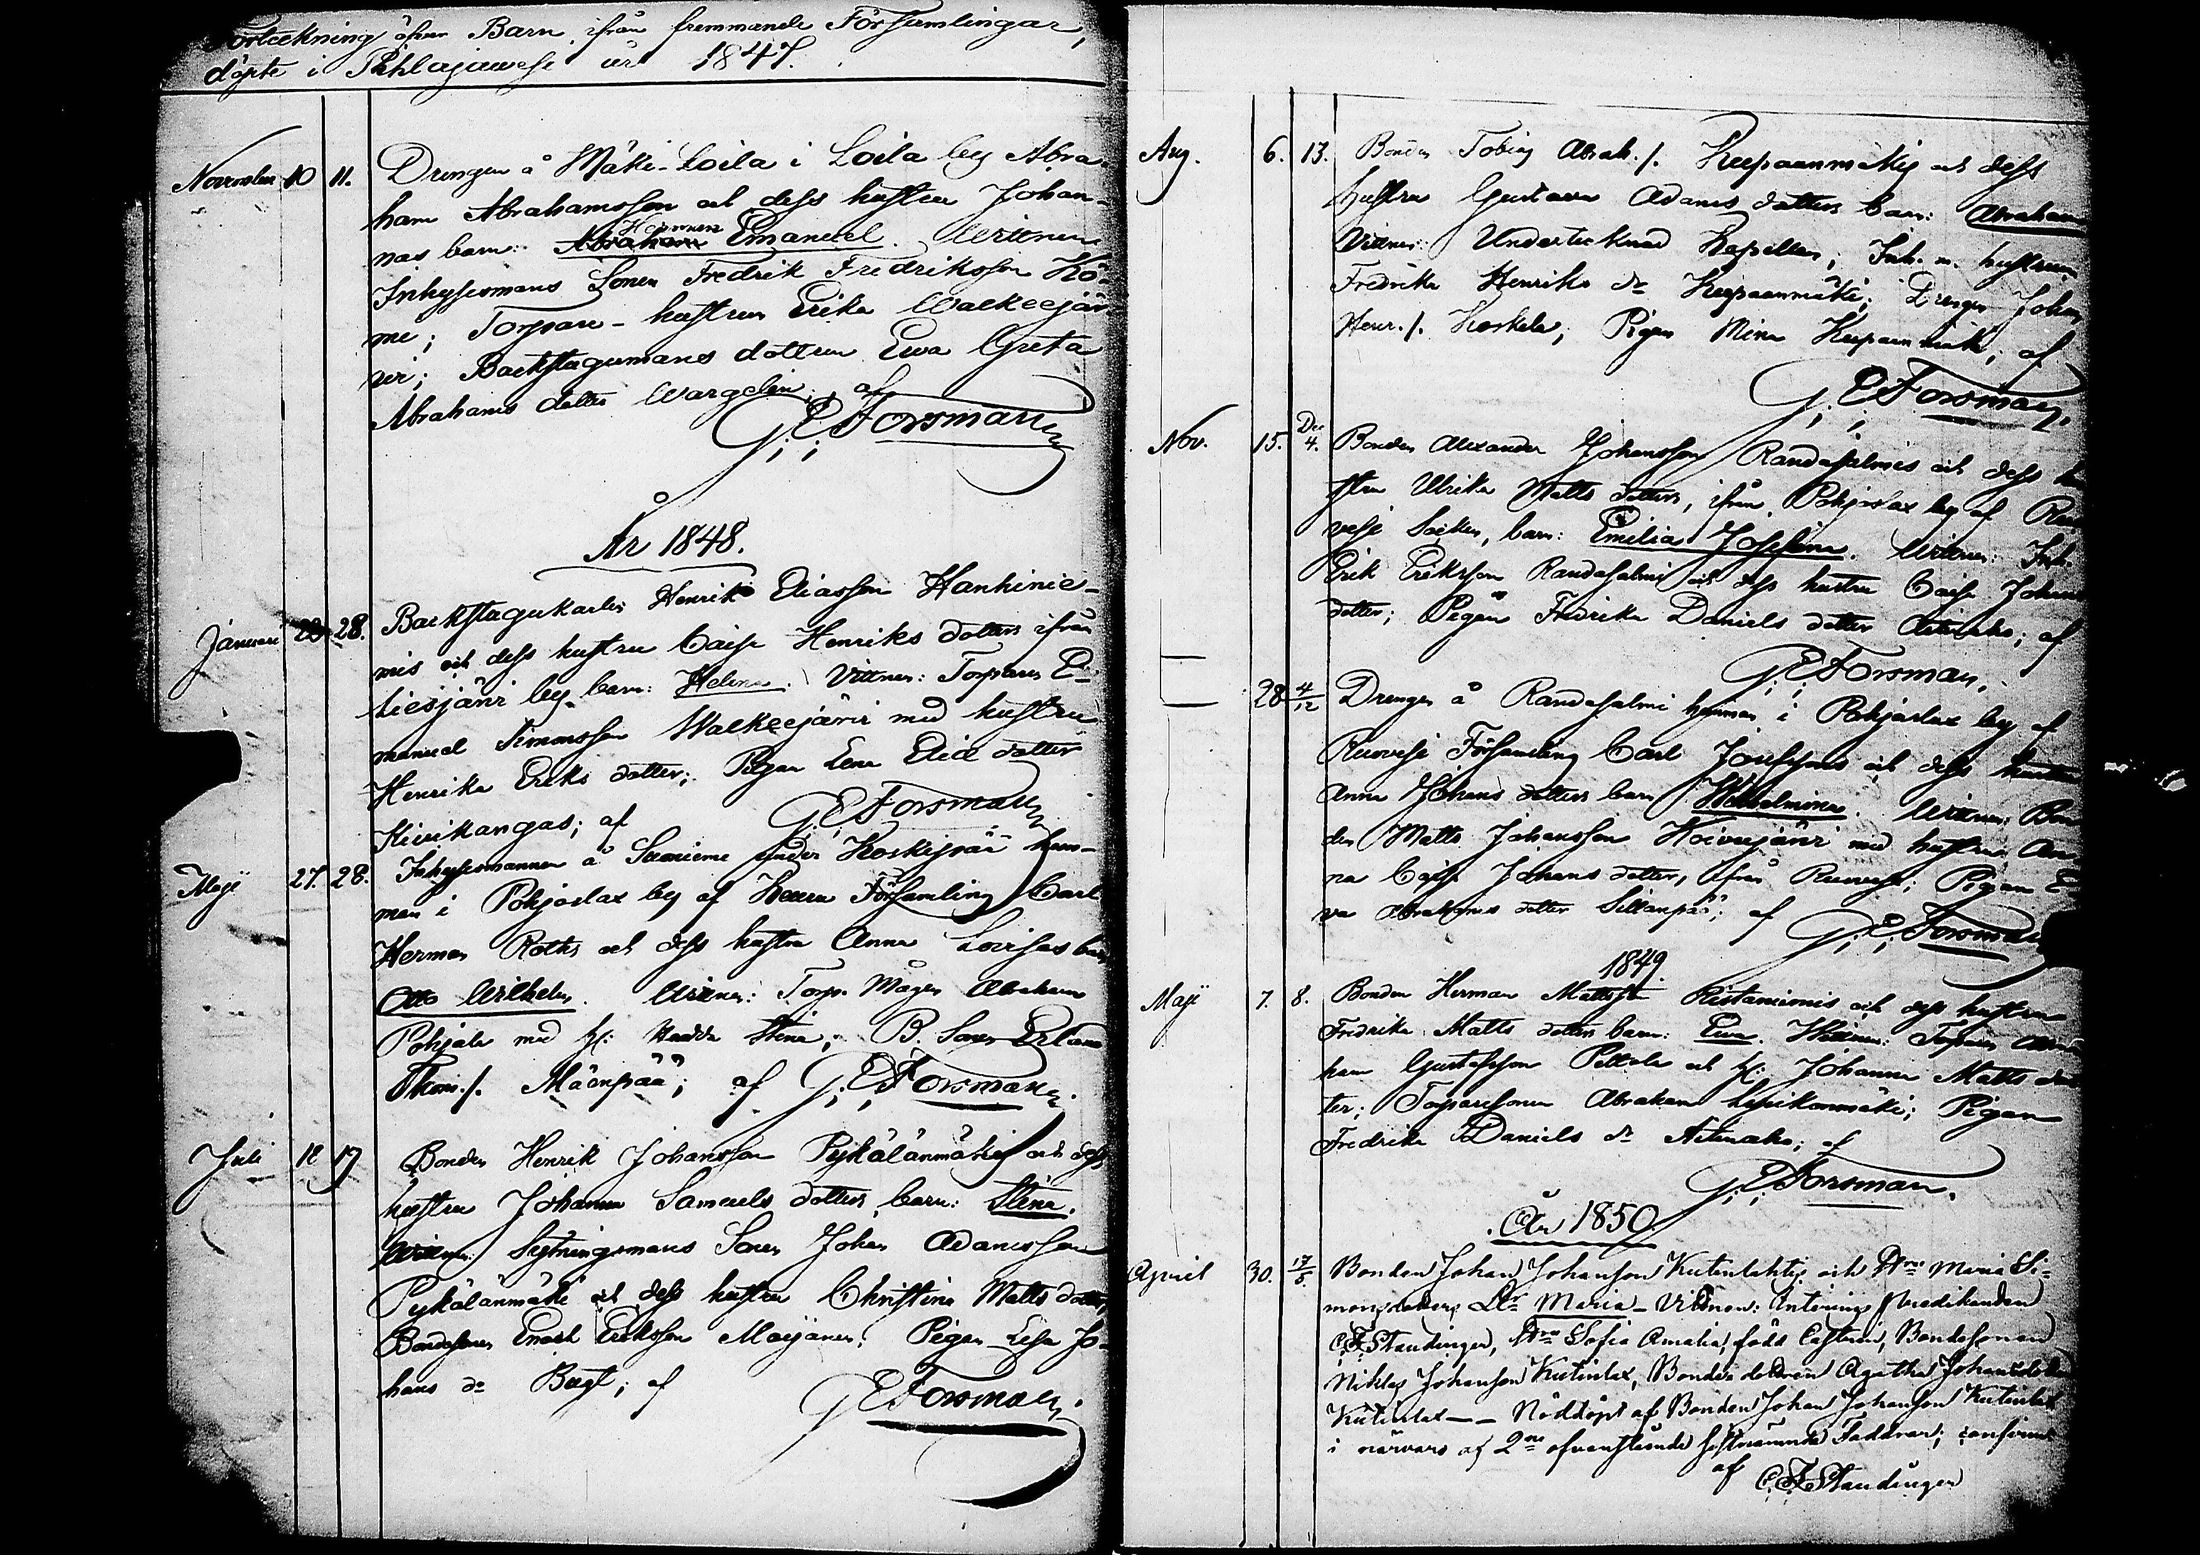 Förteckning öfver Barn, ifrån fremmande Församlingar,
döpte i Pihlajawesi år 1847.
November 10 11. Drengen å Mäki-Loila i Loila by Abra-
ham Abrahamsson och dess hustru Johan-
nas barn: Abraham Herman Emanuel. Wittnen
Inhysesmans Sonen Fredrik Fredriksson
me; Torpare-hustrun Erika Walkeejär-
wi; Backstugumans dottren Ewa Greta
Abrahams dotter Wargelin; af
G. E. Forsman
År 1848.
Januari 28. Backstugukarlen Henrik Eliasson Hankinie-
mis och dess hustru Caisa Henriks dotters ifrån
Liesjärvi by barn: Helena. Vittnen: Torparen E-
manuel Simonsson Walkeejärvi med hustru
Henrika Eriks dotter; Pigan Lena Elias dotter
Kivikangas; af G. E. Forsman
Maji 27. 28. Inhysesmannen å under Koskipää hem-
man i Pohjaslax by af Keuru Församling Carl
Herman Roths och dess hustru Anna Lovisas barn
Otto Wilhelm. Wittnen: Torp. Mågen Abraham
Pohjala med h: Hedda Stina; B. Sonen
Thom./. Mäenpää; af G. E. Forsman.
Juli 12 17 Bonden Henrik Johansson Pykälänmäkis och dess
hustru Johanna Samuels dotters barn: Stina.
Wittnen: Sytningsmans Sonen Johan Adamsson
Pykälänmäki och dess hustru Christina Matts dotter,
Bondesonen Enoch Eriksson Pigan Lisa Jo-
hans dr ; af G. E. Forsman.
Aug. 6. 13. Bonden Tobias Abrah./. Keepaanmäkis och dess
hustru Gustava Adams dotters barn: Abraham
Vittnen: Undertecknad Kapellan, Inh. m. hustrun
Fredrika Henriks dr Keepaanmäki; Drengen Johan
Henr./. Koskela; Pigan Mina Keepaanmäki; af
G. E. Forsman.
Nov. 15. Dec 4. Bonden Alexander Johansson Randasalmis och dess hu-
stru Ulrika Matts dotters, ifrån Pohjaslax by af Ruo-
vesi Socken, barn: Emilia Josefina. Wittnen: Inh.
Erik Eriksson Randasalmi och dess hustru Caisa Johans
dotter; Pigan Fredrika Daniels dotter Aitinaho; af
G. E. Forsman.
28 4/12 Drengen å Randasalmi hemman i Pohjaslax by af
Ruovesi Församling Carl Josefssons och dess hustru
Anna Johans dotters barn Wilhelmina. Wittnen: Bon-
den Matts Johansson med hustru An-
na Caisa Johans dotter, ifrån Ruovesi; Pigan E-
va Abrahams dotter Sillanpää; af
G. E. Forsman
1849.
Maji 7. 8. Bonden Herman Mattsson Ristaniemis och dess hustru
Fredrika Matts dotters barn: Eva. Wittnen: Torparen Abra-
ham Gustafsson och h: Johanna Matts dot-
ter; Torparesonen Abraham ; Pigan
Fredrika Daniels dr Aitinaho; af
G. E. Forsman.
År 1850.
April 30. 17/5. Bonden Johan Johansson Kutinlahtis och Hru Maria Si-
monsdotters Dr Maria – Vittnen: Interims Predikanten
C. F. Standinger, Hru Sofia Amalia, född Castrén, Bondesonen
Niklas Johansson Kutinlax, Bonde dottren Agatha Johansdotter
Kutinlax – – Nöddöpt af Bonden Johan Johansson Kutinlax
i närvaro af 2ne ofvanstående sistnämnda Faddrar;
af C. F. Standinger